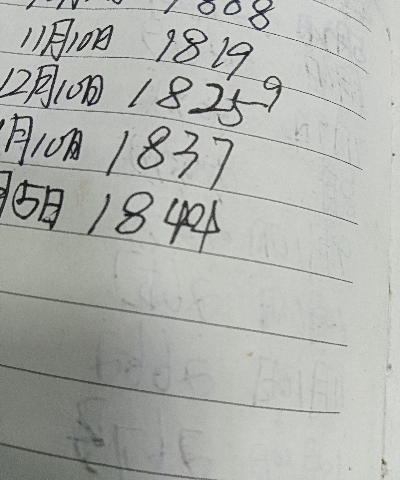 1808
11月10日 1819
12月10日 18259
月10日 1837
月5日 1844